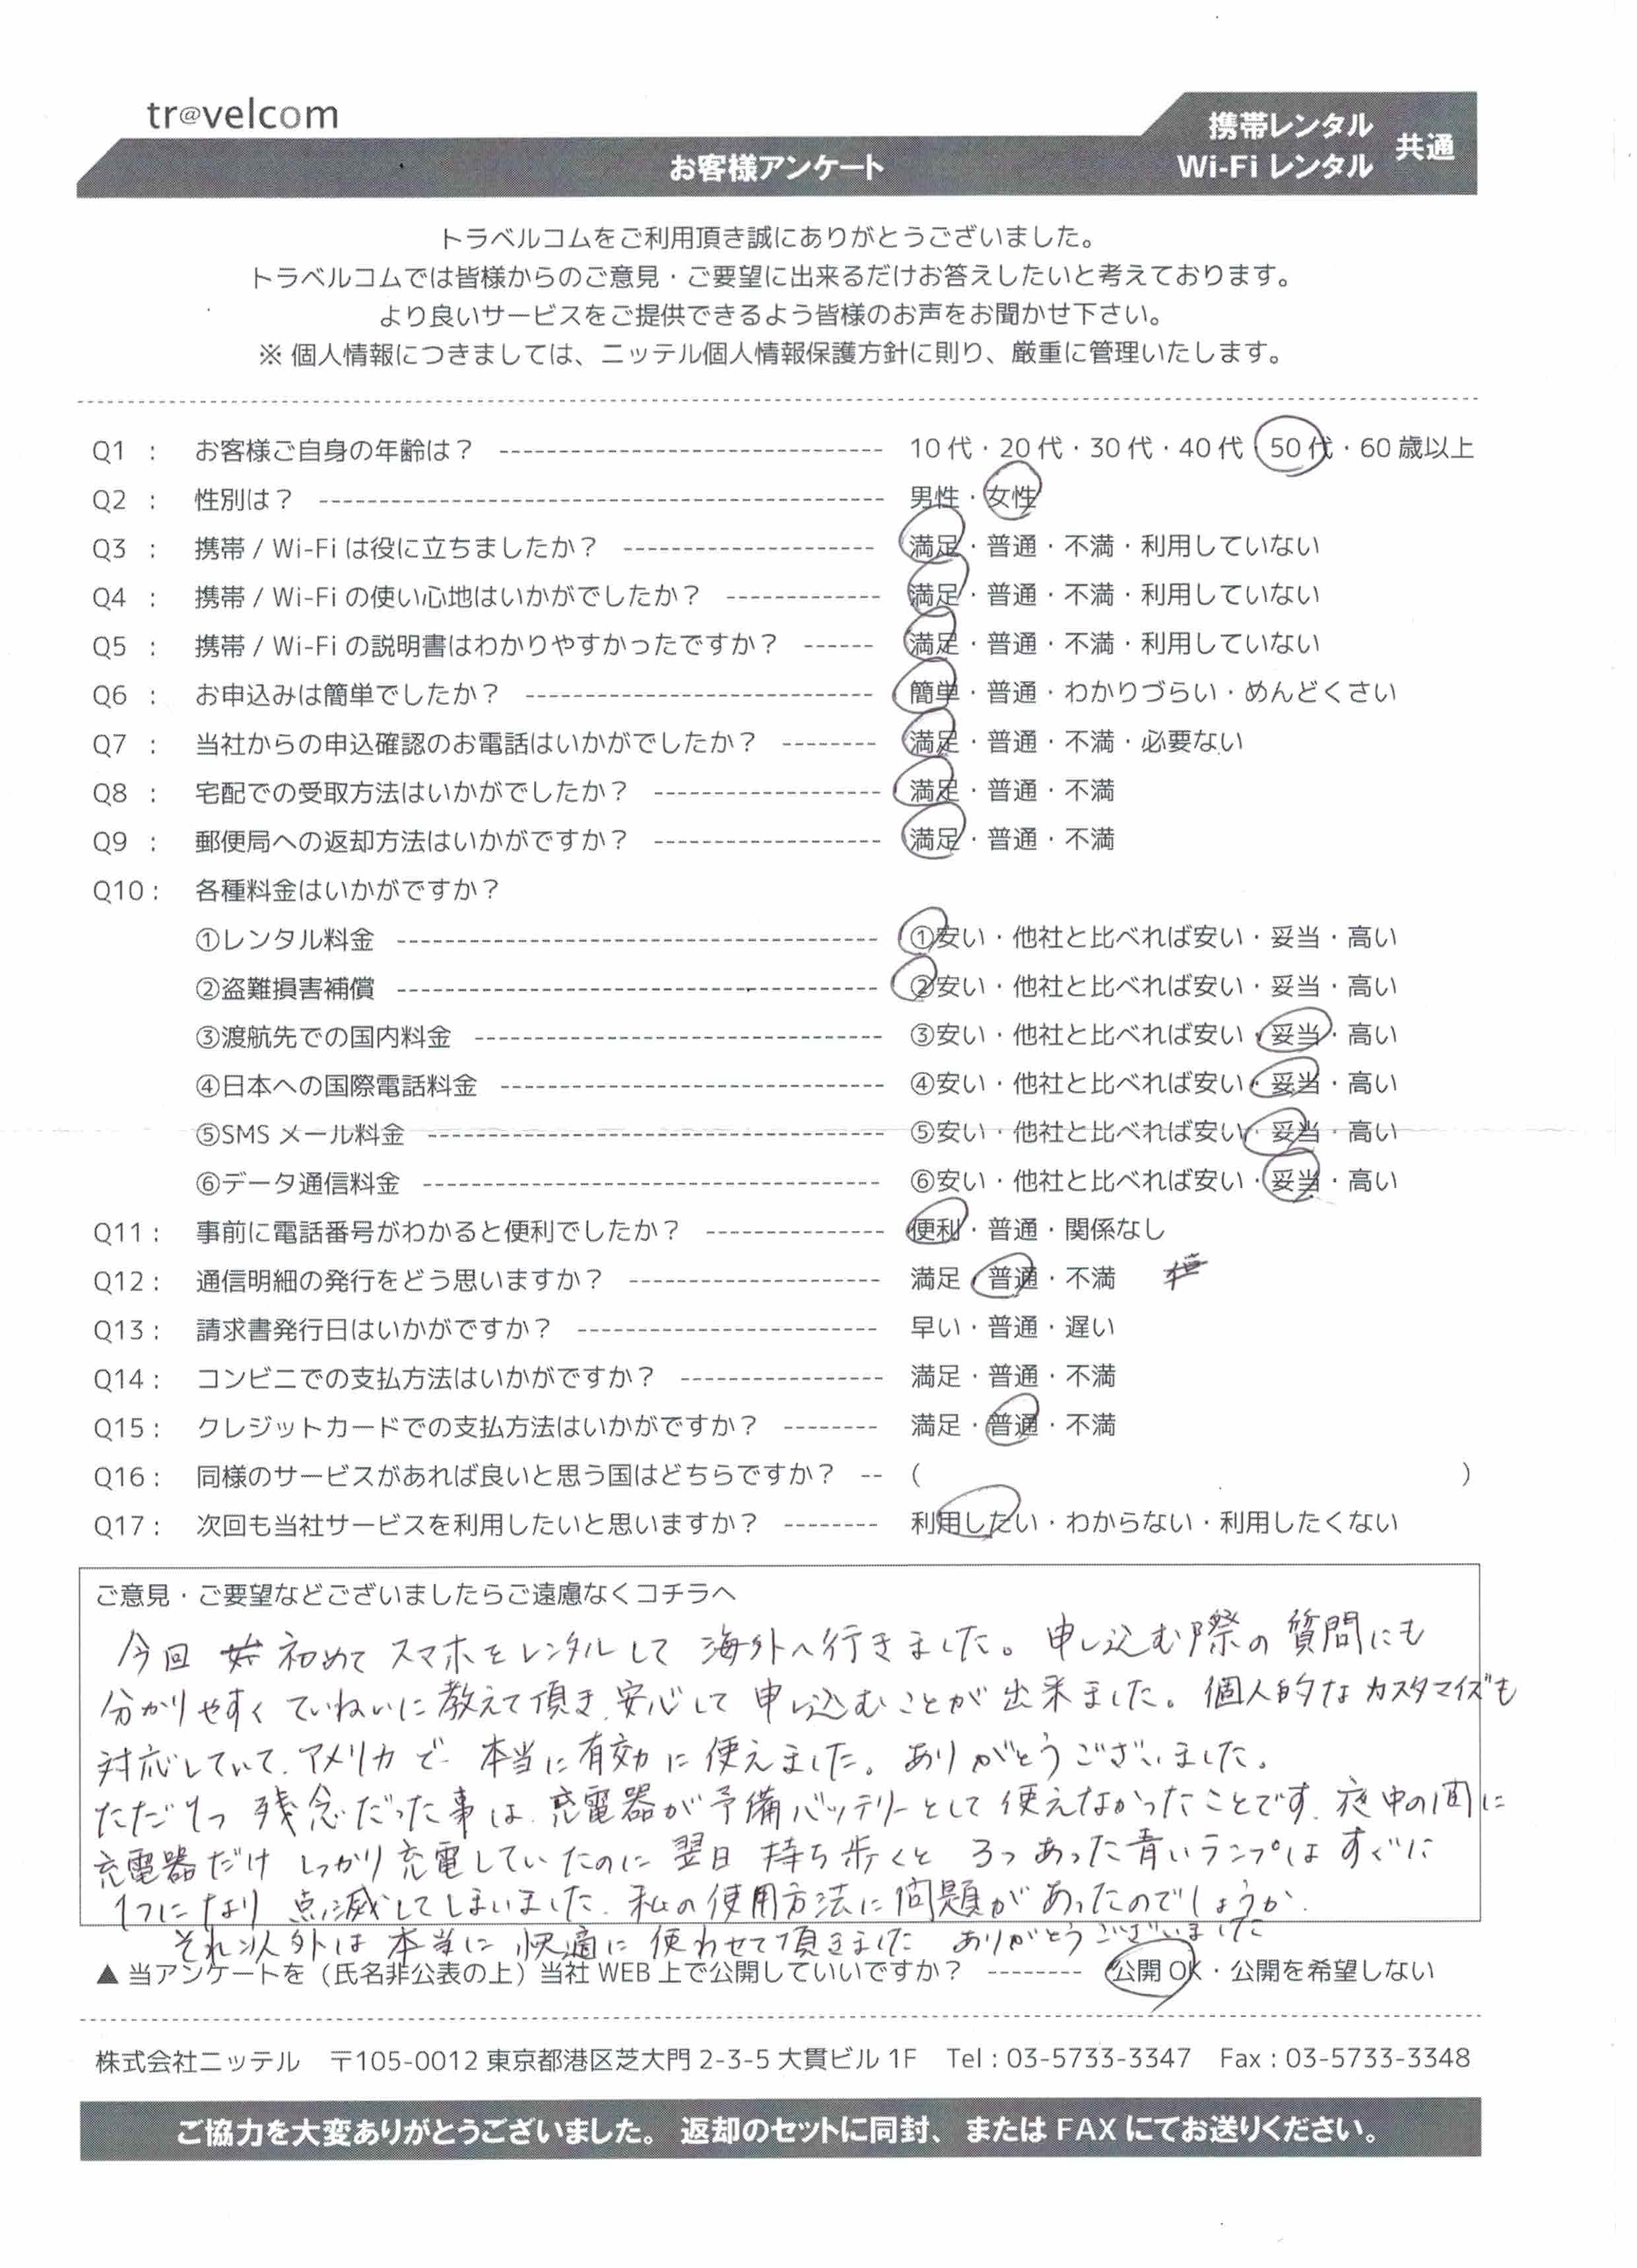 tr@velcom
携帯レンタル
Wi-Fi レンタル
共通
お客様アンケート
トラベルコムをご利用頂き誠にありがとうございました。
トラベルコムでは皆様からのご意見・ご要望に出来るだけお答えしたいと考えております。
より良いサービスをご提供できるよう皆様のお声をお聞かせ下さい。
※ 個人情報につきましては、ニッテル個人情報保護方針に則り、厳重に管理いたします。
Q1 : お客様ご自身の年齢は？ 10 代・20 代・30 代・40 代・50 代・60 歳以上
Q2 : 性別は？ 男性・女性
Q3 : 携帯 / Wi-Fi は役に立ちましたか？ 満足・普通・不満・利用していない
Q4 : 携帯 / Wi-Fi の使い心地はいかがでしたか？ 満足・普通・不満・利用していない
Q5 : 携帯 / Wi-Fi の説明書はわかりやすかったですか？ 満足・普通・不満・利用していない
Q6 : お申込みは簡単でしたか？ 簡単・普通・わかりづらい・めんどくさい
Q7 : 当社からの申込確認のお電話はいかがでしたか？ 満足・普通・不満・必要ない
Q8 : 宅配での受取方法はいかがでしたか？ 満足・普通・不満
Q9 : 郵便局への返却方法はいかがですか？ 満足・普通・不満
Q10 : 各種料金はいかがですか？
①レンタル料金 ①安い・他社と比べれば安い・妥当・高い
②盗難損害補償 ②安い・他社と比べれば安い・妥当・高い
③渡航先での国内料金 ③安い・他社と比べれば安い・妥当・高い
④日本への国際電話料金 ④安い・他社と比べれば安い・妥当・高い
⑤SMS メール料金 ⑤安い・他社と比べれば安い・妥当・高い
⑥データ通信料金 ⑥安い・他社と比べれば安い・妥当・高い
Q11 : 事前に電話番号がわかると便利でしたか？ 便利・普通・関係なし
Q12 : 通信明細の発行をどう思いますか？ 満足・普通・不満
Q13 : 請求書発行日はいかがですか？ 早い・普通・遅い
Q14 : コンビニでの支払方法はいかがですか？ 満足・普通・不満
Q15 : クレジットカードでの支払方法はいかがですか？ 満足・普通・不満
Q16 : 同様のサービスがあれば良いと思う国はどちらですか？ ( )
Q17 : 次回も当社サービスを利用したいと思いますか？ 利用したい・わからない・利用したくない
ご意見・ご要望などございましたらご遠慮なくコチラへ
今回 初めて スマホをレンタルして 海外へ行きました。申し込む際の質問にも
分かりやすく ていねいに教えて頂き、安心して申し込むことが出来ました。個人的なカスタマイズも
対応していて、アメリカで 本当に有効に使えました。ありがとうございました。
ただ1つ 残念だった事は、充電器が予備バッテリーとして使えなかったことです。夜中の間に
充電器だけ しっかり充電していたのに 翌日 持ち歩くと 3つあった青いランプはすぐに
1つになり 点滅してしまいました。私の使用方法に問題があったのでしょうか。
それ以外は 本当に快適に 使わせて頂きました ありがとうございました
▲ 当アンケートを（氏名非公表の上）当社 WEB 上で公開していいですか？ 公開 OK・公開を希望しない
株式会社ニッテル 〒105-0012 東京都港区芝大門 2-3-5 大貫ビル 1F Tel : 03-5733-3347 Fax : 03-5733-3348
ご協力を大変ありがとうございました。 返却のセットに同封、またはFAXにてお送りください。